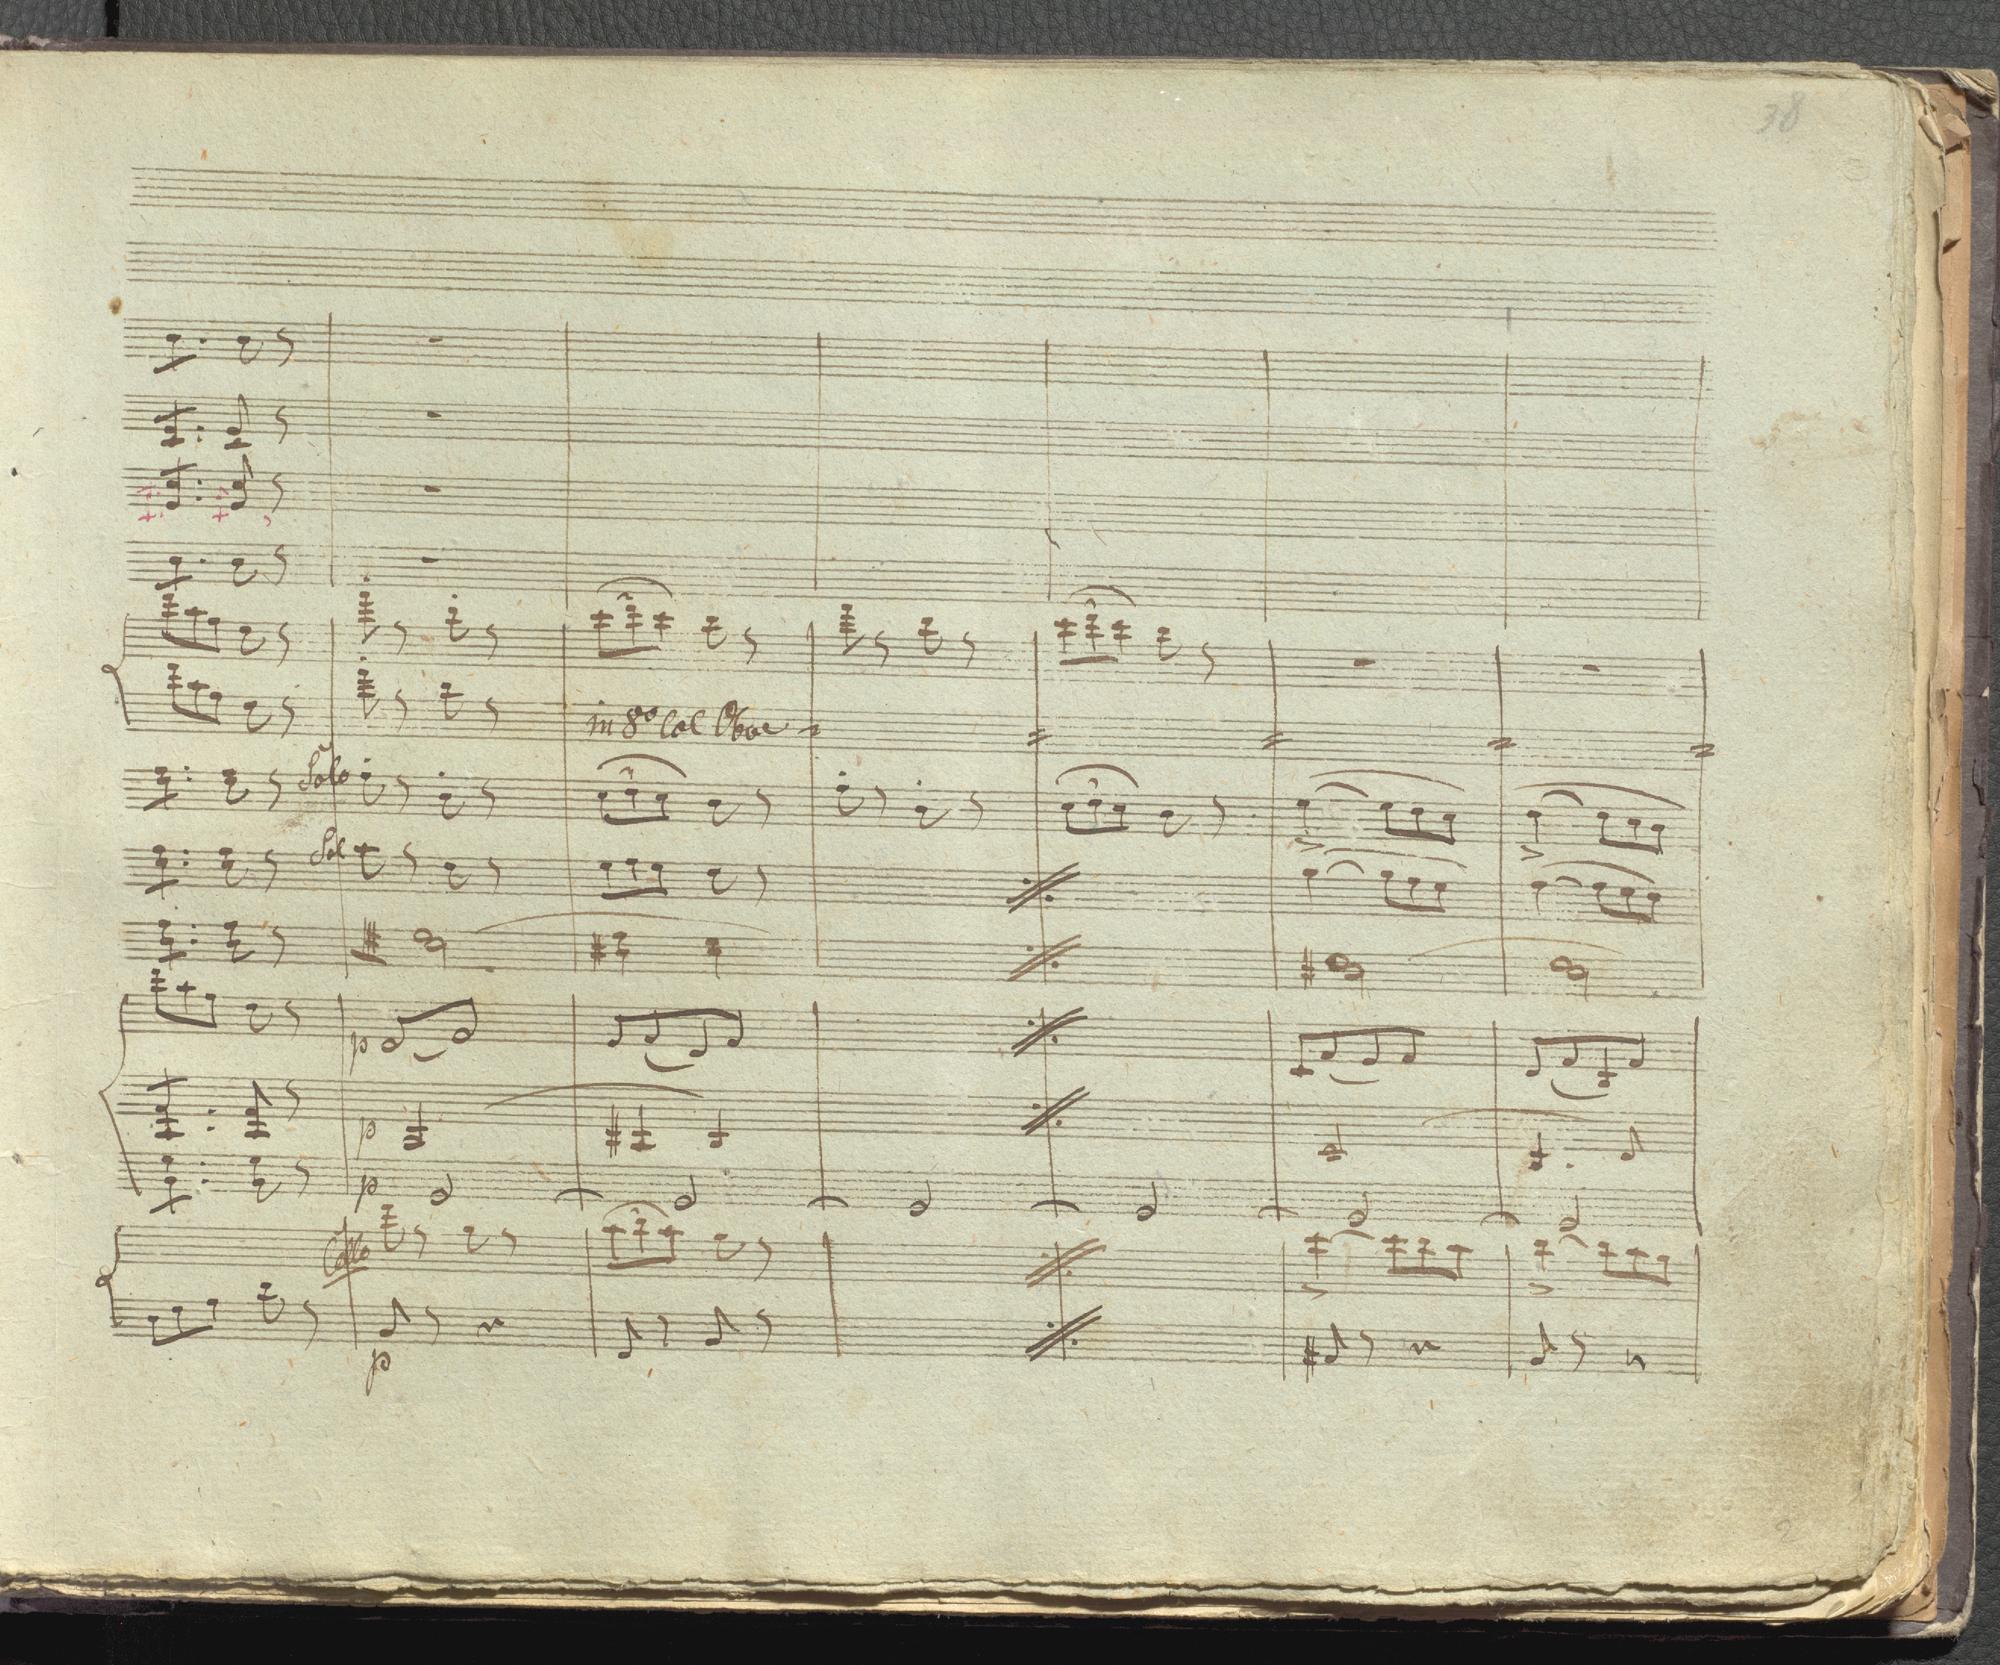 38
in 8º Col Oboe
Solo
Sol
p
p
p
Cello
p